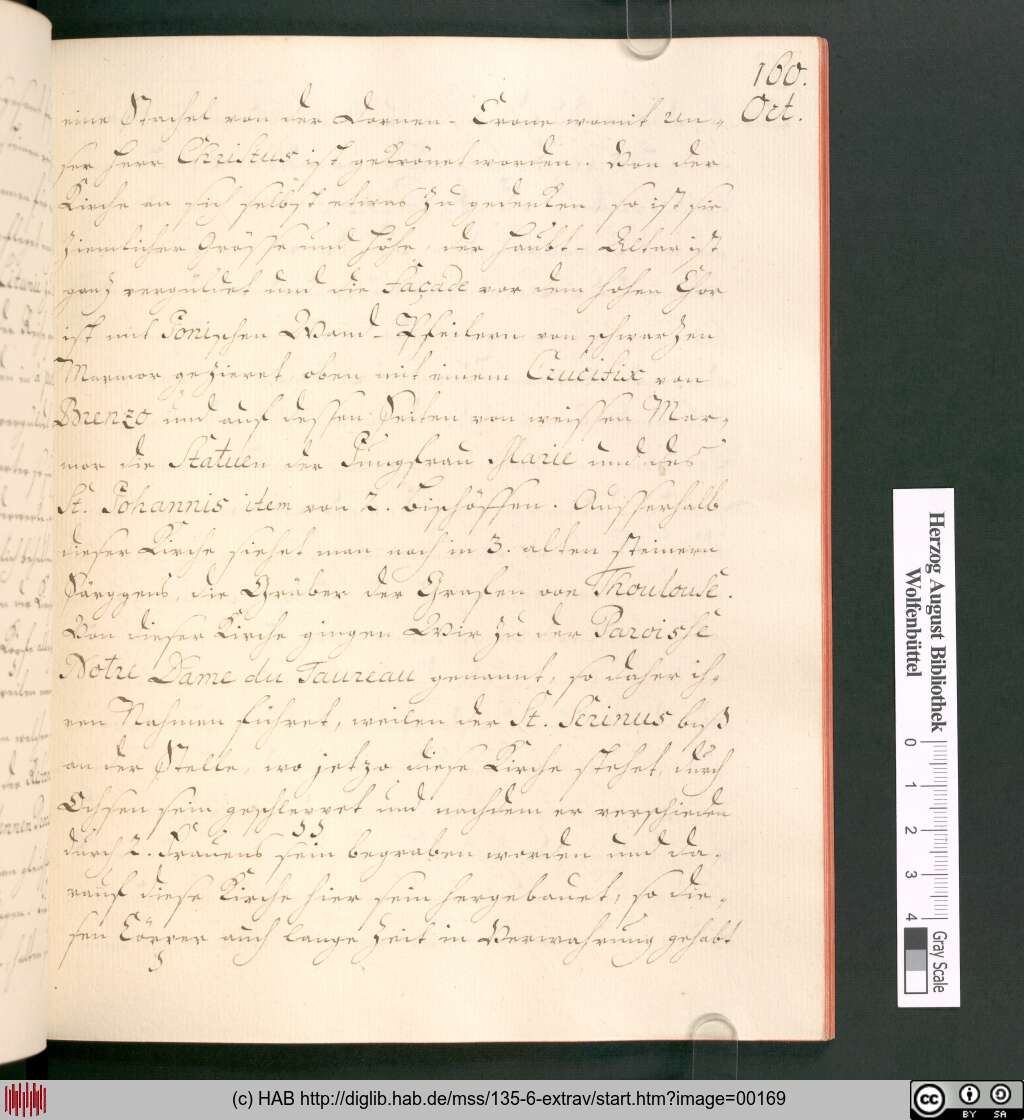 160.
Oct.
eine Stachel von der Dornen-Crone womit un-
ser Herr Christus ist gekrönet worden. Von der
Kirche an sich selbst etwas zu gedencken, so ist sie
ziemlicher Grösse und Höhe, der Haubt-Altar ist
gantz vergüldet und die Façade vor dem hohen Chor
ist mit Jonischen Wand-Pfeilern von schwarzen
Marmor gezieret, oben mit einem Crucifix von
Bronzo und auf dessen Seiten von weissen Mar-
mor die Statuen der Jungfrau Marie und des
St. Johannis item von 2. Bischöffen. Ausserhalb
dieser Kirche siehet man noch in 3. alten steinern
Särggens, die Gräber der Grafen von Thoulouse.
Von dieser Kirche gingen Wir zu der Paroisse
Notre Dame du Taureau genannt, so daher ih-
ren Nahmen führet, weilen der St. Serinus biß
an der Stelle, wo jetzo diese Kirche stehet, durch
Ochsen sein geschleppet und nachdem er verschieden
durch 2. Frauens sein begraben worden und da-
rauf diese Kirche hier sein hergebauet, so die-
sen Cörper auch lange Zeit in Verwahrung gehabt
Herzog August Bibliothek
Wolfenbüttel
0 1 2 3 4
Gray Scale
(c) HAB http://diglib.hab.de/mss/135-6-extrav/start.htm?image=00169
cc BY SA